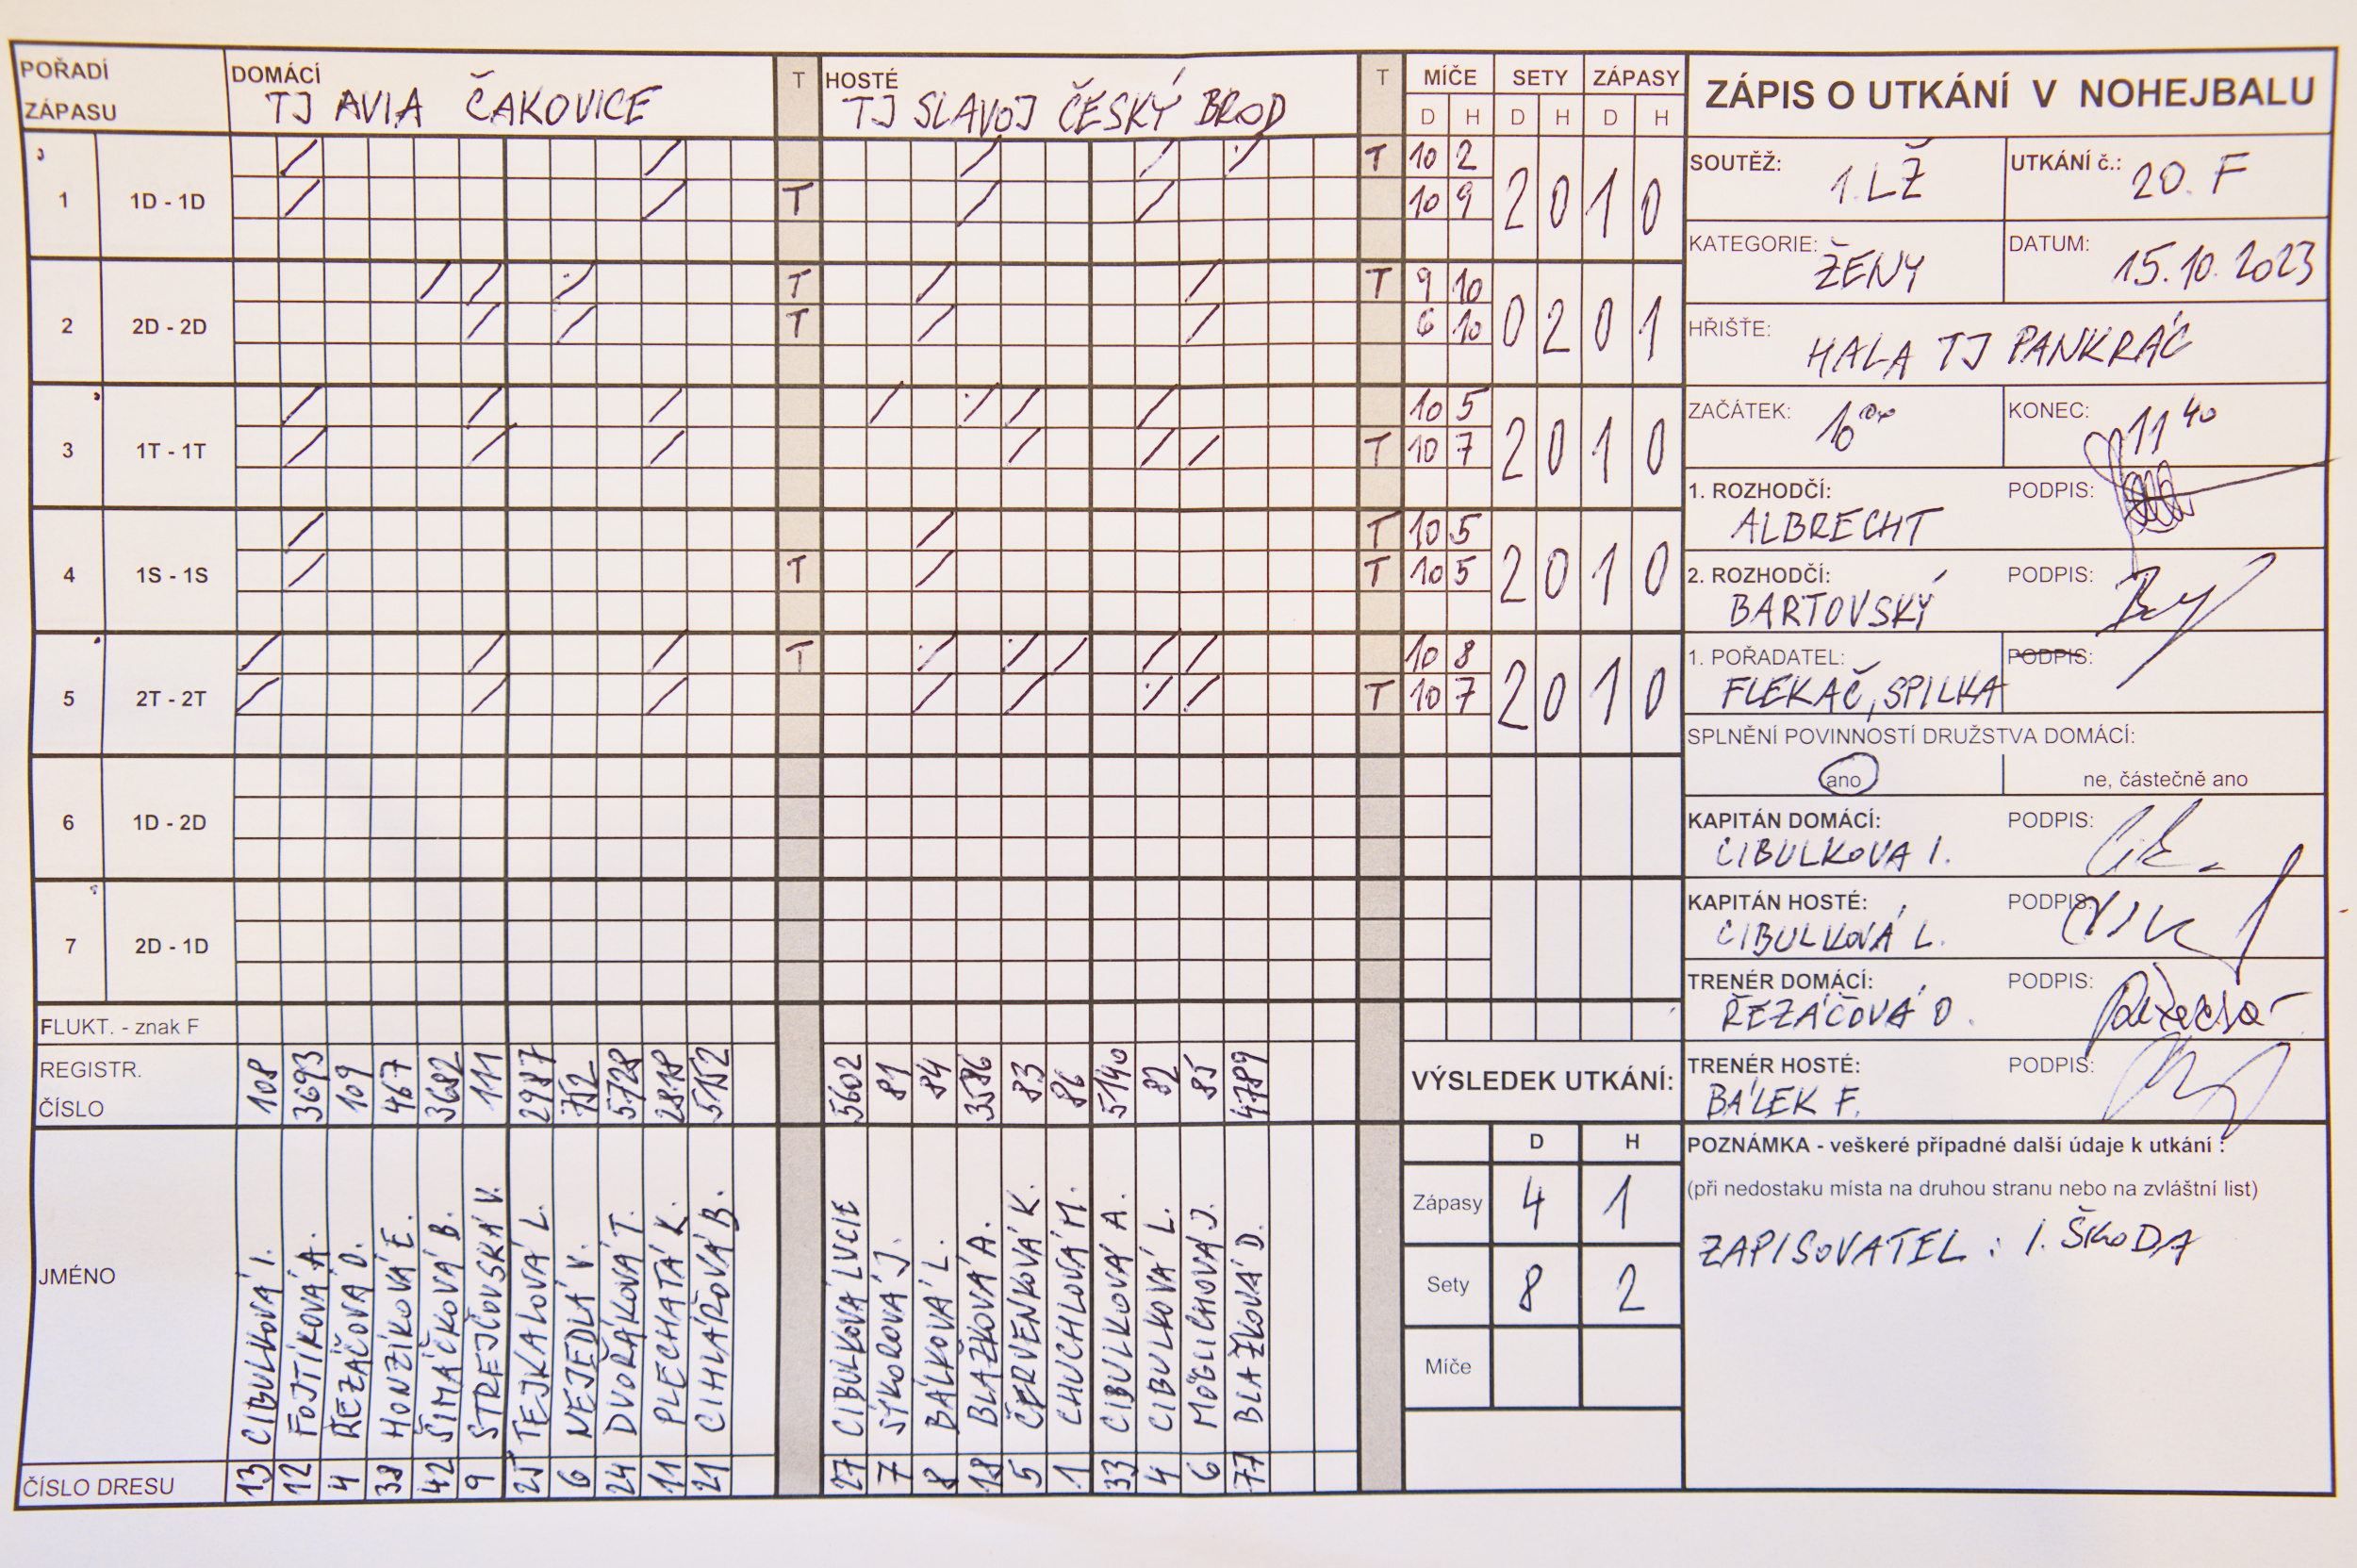 POŘADÍ ZÁPASU
DOMÁCÍ
TJ AVIA ČAKOVICE
T
HOSTÉ
TJ SLAVOJ ČESKÝ BROD
T
MÍČE SETY ZÁPASY
D H D H D H
1 1D - 1D T 10 2 2 0 1 0
T 10 9
2 2D - 2D T T 9 10 0 2 0 1
T 6 10
3 1T - 1T 10 5 2 0 1 0
T 10 7
4 1S - 1S T 10 5 2 0 1 0
T T 10 5
5 2T - 2T T 10 8 2 0 1 0
T 10 7
6 1D - 2D
7 2D - 1D
FLUKT. - znak F
REGISTR. ČÍSLO
108 3693 109 467 3682 111 2987 752 5728 2818 5152
5602 81 84 3586 83 86 5140 82 85 4789
JMÉNO
CIBULKOVÁ I.
FOJTÍKOVÁ A.
ŘEZÁČOVÁ D.
HONZÍKOVÁ E.
ŠIMÁČKOVÁ B.
STREJČOVSKÁ V.
TEJKALOVÁ L.
NEJEDLÁ V.
DVOŘÁKOVÁ T.
PLECHATÁ K.
CIHLÁŘOVÁ B.
CIBULKOVÁ LUCIE
SÝKOROVÁ J.
BÁLKOVÁ L.
BLAŽKOVÁ A.
ČERVENKOVÁ K.
CHUCHLOVÁ M.
CIBULKOVÁ A.
CIBULKOVÁ L.
MÖGLICHOVÁ J.
BLAŽKOVÁ D.
ČÍSLO DRESU
13 12 4 38 42 9 25 6 24 11 21
27 7 8 18 5 1 33 4 6 77
VÝSLEDEK UTKÁNÍ:
D H
Zápasy 4 1
Sety 8 2
Míče
ZÁPIS O UTKÁNÍ V NOHEJBALU
SOUTĚŽ: 1.LŽ
UTKÁNÍ č.: 20. F
KATEGORIE: ŽENY
DATUM: 15.10.2023
HŘIŠTE: HALA TJ PANKRÁC
ZAČÁTEK: 10 00
KONEC: 11 40
1. ROZHODČÍ: PODPIS:
ALBRECHT
2. ROZHODČÍ: PODPIS:
BARTOVSKÝ
1. POŘADATEL: PODPIS:
FLEKAČ, SPILKA
SPLNĚNÍ POVINNOSTÍ DRUŽSTVA DOMÁCÍ:
ano ne, částečně ano
KAPITÁN DOMÁCÍ: PODPIS:
CIBULKOVA I.
KAPITÁN HOSTÉ: PODPIS:
CIBULKOVÁ L.
TRENÉR DOMÁCÍ: PODPIS:
ŘEZÁČOVÁ D.
TRENÉR HOSTÉ: PODPIS:
BÁLEK F.
POZNÁMKA - veškeré případné další údaje k utkání :
(při nedostaku místa na druhou stranu nebo na zvláštní list)
ZAPISOVATEL : I. ŠKODA